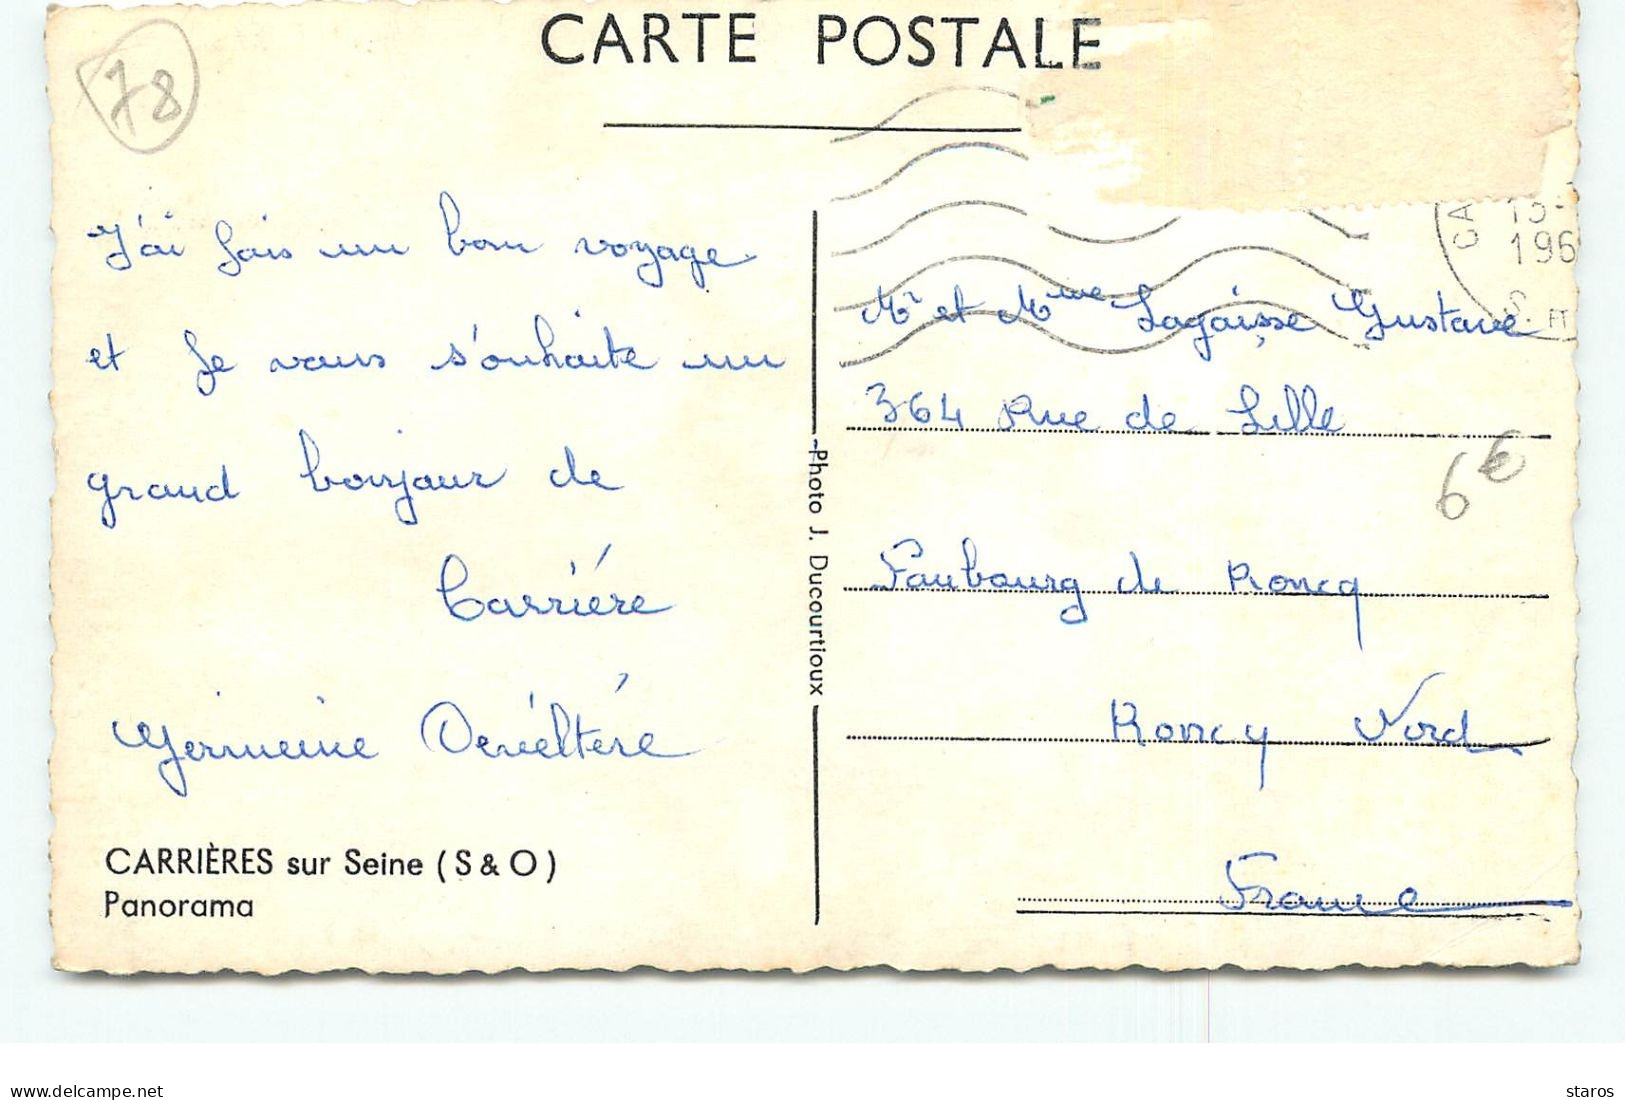 CARTE POSTALE
78
J'ai fais un bon voyage
et Je vous s'ouhaite un
grand bonjour de
Carriére
CARRIÈRES sur Seine (S & O)
Panorama
Photo J. Ducourtioux
CA
15-
196
S. ET
Mr et Mme Lagaisse Gustave
364 Rue de Lille
6€
Faubourg de Roncq
Roncy Nord
France
delcampe.net
staros